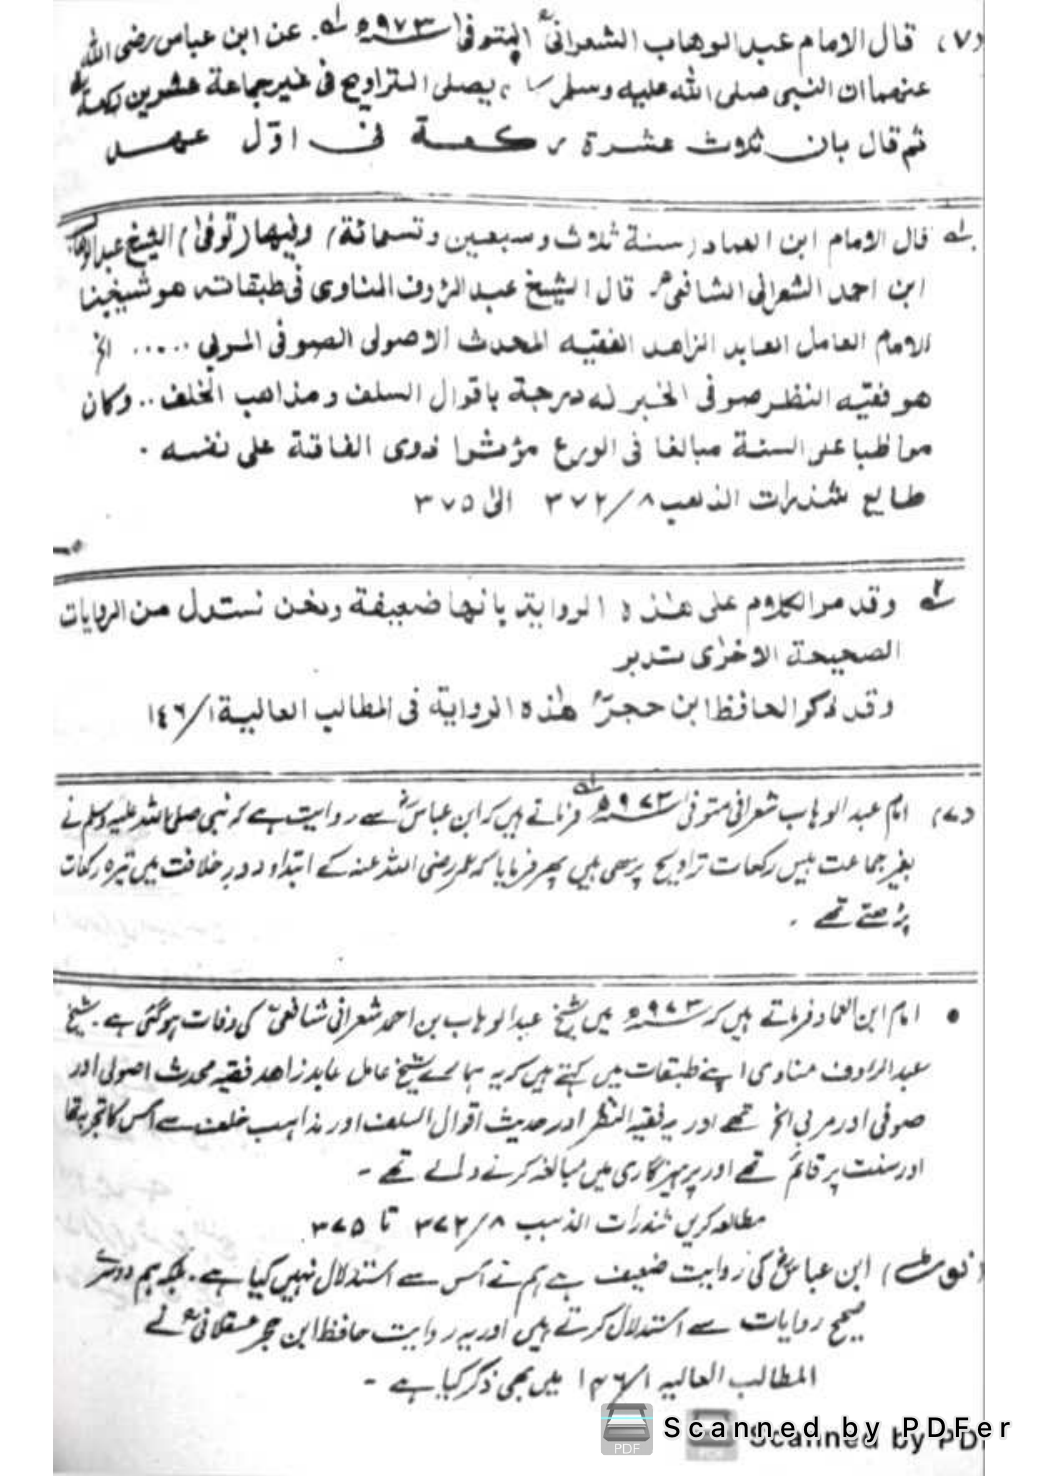 (٧) قال الامام عبد الوهاب الشعرانیؒ المتوفیٰ ٩٧٣ھ لہ. عن ابن عباس رضی الله
عنهما ان النبی صلی الله علیه وسلم کان یصلی التراویح فی غیر جماعة عشرین رکعة ٢ہ
ثم قال بان ثلاث عشرة رکعة فی اوّل عهد
لہ قال الامام ابن العماد (سنة ثلاث وسبعین وتسمائة) وفیها (توفی) الشیخ عبد الوهاب
ابن احمد الشعرانی الشافعیؒ. قال الشیخ عبد الرؤف المناوی فی طبقاته هو شیخنا
الامام العامل العابد الزاهد الفقیه المحدث الاصولی الصوفی المربی ..... الخ
هو فقیه النظر صوفی الخبر له دربة باقوال السلف ومذاهب الخلف .. وکان
مواظبا علی السنة مبالغا فی الورع مؤثرا ذوی الفاقة علی نفسه .
طالع شذرات الذهب ٨/٣٧٢ الیٰ ٣٧٥
٢ہ وقد مر الکلام علی هٰذه الروایة بانها ضعیفة ونحن نستدل من الروایات
الصحیحة الاخرٰی تدبر
وقد ذکر الحافظ ابن حجرؒ هٰذه الروایة فی المطالب العالیة ١/١٤٦
(٧) امام عبد الوہاب شعرانی متوفی ٩٧٣ھ لہ فرماتے ہیں کہ ابن عباسؓ سے روایت ہے کہ نبی صلی اللہ علیہ وسلم نے
بغیر جماعت بیس رکعات تراویح پڑھی ہیں پھر فرمایا کہ عمر رضی اللہ عنہ کے ابتداء دورِ خلافت میں تیرہ رکعات
پڑھتے تھے .
• امام ابن العماد فرماتے ہیں کہ ٩٧٣ھ میں شیخ عبد الوہاب بن احمد شعرانی شافعیؒ کی وفات ہوگئی ہے . شیخ
عبد الرؤف مناوی اپنے طبقات میں کہتے ہیں کہ یہ ہمارے شیخ عامل عابد زاهد فقیہ محدث اصولی اور
صوفی اور مربی الخ تھے اور یہ فقیہ النظر اور حدیث اقوال السلف اور مذاہب خلف سے اس کا تجربہ تھا
اور سنت پر قائم تھے اور پرہیزگاری میں مبالغہ کرنے والے تھے -
مطالعہ کریں شذرات الذہب ٨/٣٧٢ تا ٣٧٥
(نوٹ) ابن عباسؓ کی روایت ضعیف ہے ہم نے اس سے استدلال نہیں کیا ہے . بلکہ ہم دوسرے
صحیح روایات سے استدلال کرتے ہیں اور یہ روایت حافظ ابن حجر عسقلانیؒ نے
المطالب العالیہ ١/١٤٦ میں بھی ذکر کیا ہے -
PDF Scanned by PDFer
Scanned by PD